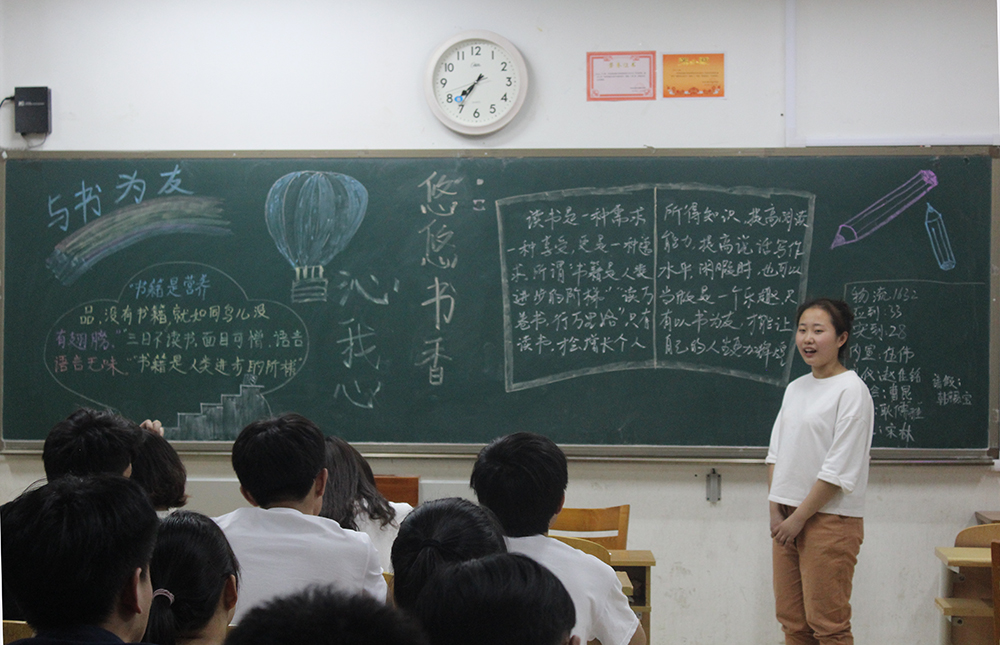 12
1
2
3
4
5
6
7
8
9
10
11
与书为友
书籍是营养
品，没有书籍，就如同鸟儿没
有翅膀。三日不读书，面目可憎，语音
语音无味"书籍是人类进步的阶梯"
悠悠书香
沁我心
读书是一种需求
一种享受,更是一种追
求.所谓"书籍是人类
进步的阶梯""读万
卷书,行万里路"只有
读书,才会增长个人
所得知识,提高阅读
能力,提高说话写作
水平.闲暇时,也可以
当做是一个乐趣.只
有以书为友,才能让
自己的人生更加辉煌
物流1632
应到:33
实到:28